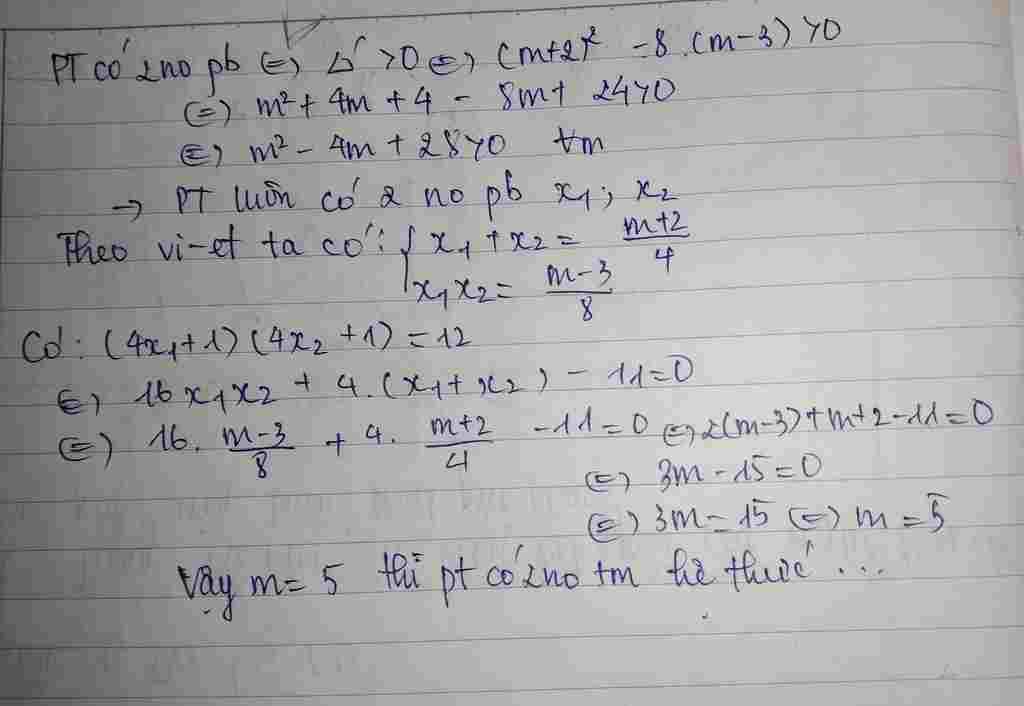 PT có 2 no pb ⇔ Δ' >0 ⇔ (m+2)² - 8.(m-3) >0
⇔ m² + 4m + 4 - 8m + 24 >0
⇔ m² - 4m + 28 >0 ∀m
→ PT luôn có 2 no pb x₁; x₂
Theo vi-et ta có: { x₁ + x₂ = (m+2)/4
x₁x₂ = (m-3)/8
Có: (4x₁+1)(4x₂+1) = 12
⇔ 16x₁x₂ + 4.(x₁+x₂) - 11 = 0
⇔ 16. (m-3)/8 + 4. (m+2)/4 - 11 = 0 ⇔ 2(m-3)+m+2-11=0
⇔ 3m - 15 = 0
⇔ 3m = 15 ⇔ m = 5
Vậy m = 5 thì pt có 2 no tm hệ thức ...